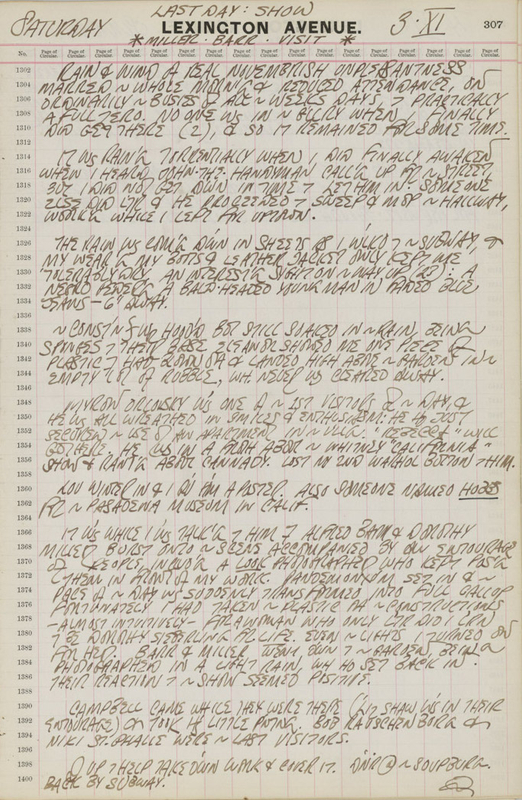 LAST DAY: SHOW
SATURDAY LEXINGTON AVENUE. 3·XI 307
*MILLER·BARR·VISIT*
No. Page of Circular. Page of Circular. Page of Circular. Page of Circular. Page of Circular. Page of Circular. Page of Circular. Page of Circular. Page of Circular. Page of Circular.
1302 RAIN & WIND A REAL NOVEMBERISH UNPLEASANTNESS
1304 MARRED ~ WHOLE MORNING & REDUCED ATTENDANCE, ON
1306 ORDINARILY ~ BUSIEST OF ALL ~ WEEKS DAYS, T PRACTICALLY
1308 A FULL ZERO. NO ONE WS IN ~ GALLERY WHEN I FINALLY
1310 DID GET THERE (2), & SO IT REMAINED FOR SOME TIME.
1312
1314 IT WS RAIN'G TORRENTIALLY WHEN I DID FINALLY AWAKEN
1316 WHEN I HEARD JOHN·THE·HANDYMAN CALL'G UP ~ STREET,
1318 BUT I DID NOT GET DOWN IN TIME T LET HIM IN. SOMEONE
1320 ELSE DID & HE PROCEEDED T SWEEP & MOP ~ HALLWAY,
1322 WORK'G WHILE I LEFT FOR UPTOWN.
1324
1326 THE RAIN WS COM'G DOWN IN SHEETS AS I WLKD T ~ SUBWAY, &
1328 MY WEAR'G MY BOOTS & LEATHER JACKET ONLY KEPT ME
1330 TOLERABLY DRY. AN INTEREST'G SIGHT ON ~ WAY UP : A
1332 A BALD·HEADED YOUNG MAN IN FADED BLUE
1334 JEANS — 6" AWAY.
1336
1338 ~ CONST'N BUT STILL SOAKED IN ~ RAIN, BEING
1340 SPONGES T THEIR BASE. ELEANOR SHOWED ME ONE PIECE OF
1342 PLASTIC T HAD BLOWN OFF & LANDED HIGH ABOVE ~ GARDENS IN ~
1344 EMPTY LOT OF RUBBLE, WH NEVER WS CLEARED AWAY.
1346
1348 MYRON ORLOFSKY WS ONE OF ~ 1ST VISITORS OF ~ DAY, &
1350 HE WS ALL WREATHED IN SMILES & ENTHUSIASM: HE HS JUST
1352 SECURED ~ USE OF AN APARTMENT IN ~ VILL. WILL
1354 GO THERE. HE WS IN A RUSH ABOUT ~ WHITNEY "CALIFORNIA"
1356 SHOW & RANT'G ABOUT CANNADY. LOST MY 2ND WARHOL BUTTON T HIM.
1358
1360 LOU WINTER IN & I GV HIM A POSTER. ALSO SOMEONE NAMED HOPPS
1362 FR ~ PASADENA MUSEUM IN CALIF.
1364
1366 IT WS WHILE I WS TALK'G T HIM T ALFRED BARR & DOROTHY
1368 MILLER BURST ONTO ~ SCENE ACCOMPANIED BY AN ENTOURAGE
1370 OF PEOPLE, INCLD'G A LOOK PHOTOGRAPHER WHO KEPT POS'G
1372 THEM IN FRONT OF MY WORK. PANDEMONIUM SET IN & ~
1374 PACE OF ~ DAY WS SUDDENLY TRANSFORMED INTO FULL GALLOP
1376 FORTUNATELY I HAD TAKEN ~ PLASTIC OFF ~ CONSTRUCTIONS
1378 —ALMOST INTUITIVELY— FOR A WOMAN WHO ONLY LTR DID I LRN
1380 T BE DOROTHY SEIBERLING FR LIFE. EVEN ~ LIGHTS I TURNED ON
1382 FOR HER. BARR & MILLER WENT OWN T ~ GARDEN, BEING
1384 PHOTOGRAPHED IN A LIGHT RAIN, WH HD SET BACK IN.
1386 THEIR REACTION T ~ SHOW SEEMED POSITIVE.
1388
1390 CAMPBELL CAME WHILE THEY WERE THERE ( SHOW WS IN THEIR
1392 ENTOURAGE) & TOOK A LITTLE PNTNG. BOB RAUSCHENBERG &
1394 NIKI ST. PHALLE WERE ~ LAST VISITORS.
1396
1398 UP T HELP TAKE DOWN WORK & COVER IT. DNR @ ~ SOUPBURG.
1400 BACK BY SUBWAY.